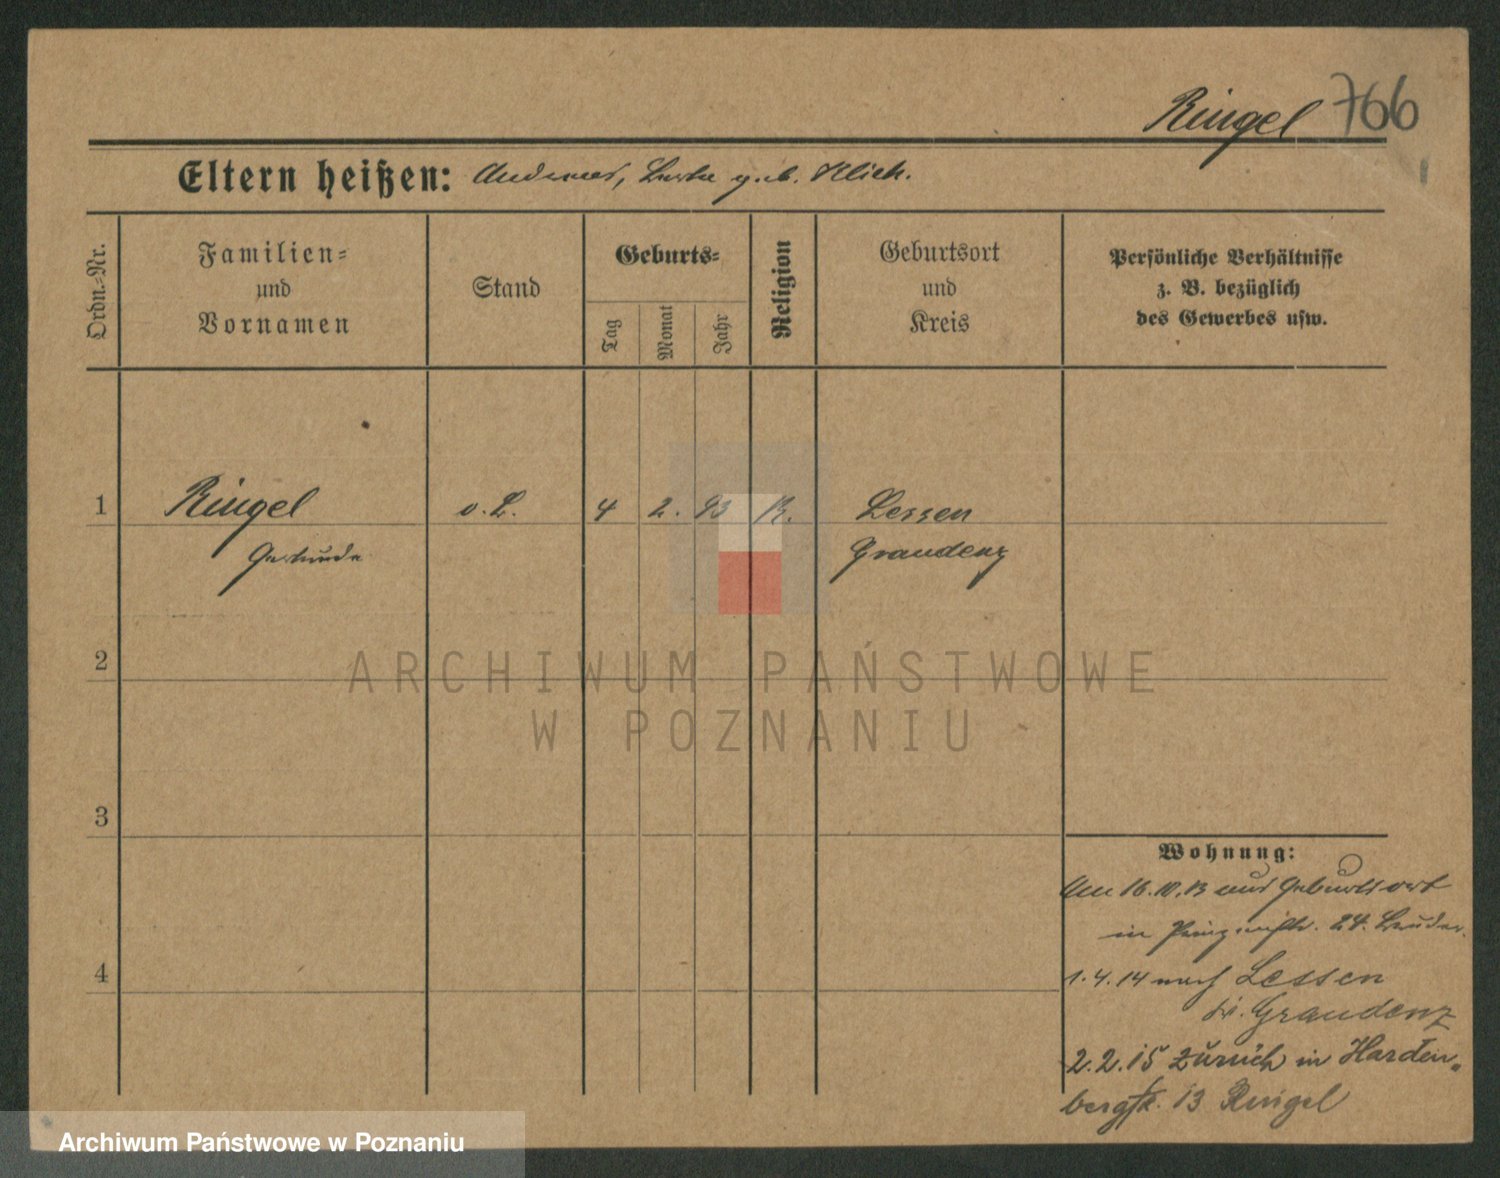 Ringel 766
Eltern heißen: Andreas, Berta geb. Klich.
Ordn.-Nr.
Familien-
und
Vornamen
Stand
Geburts-
Tag
Monat
Jahr
Religion
Geburtsort
und
Kreis
Persönliche Verhältnisse
z. B. bezüglich
des Gewerbes usw.
1 Ringel o. L. 4 2. 93 K. Lessen
Gertrude Graudenz
2
3
4
ARCHIWUM PAŃSTWOWE
W POZNANIU
Wohnung:
Am 16.10.13 aus Geburtsort
in 24.
1.4.14 nach Lessen
Kr. Graudenz
2.2.15 zurück in Harden-
bergstr. 13 Ringel
Archiwum Państwowe w Poznaniu